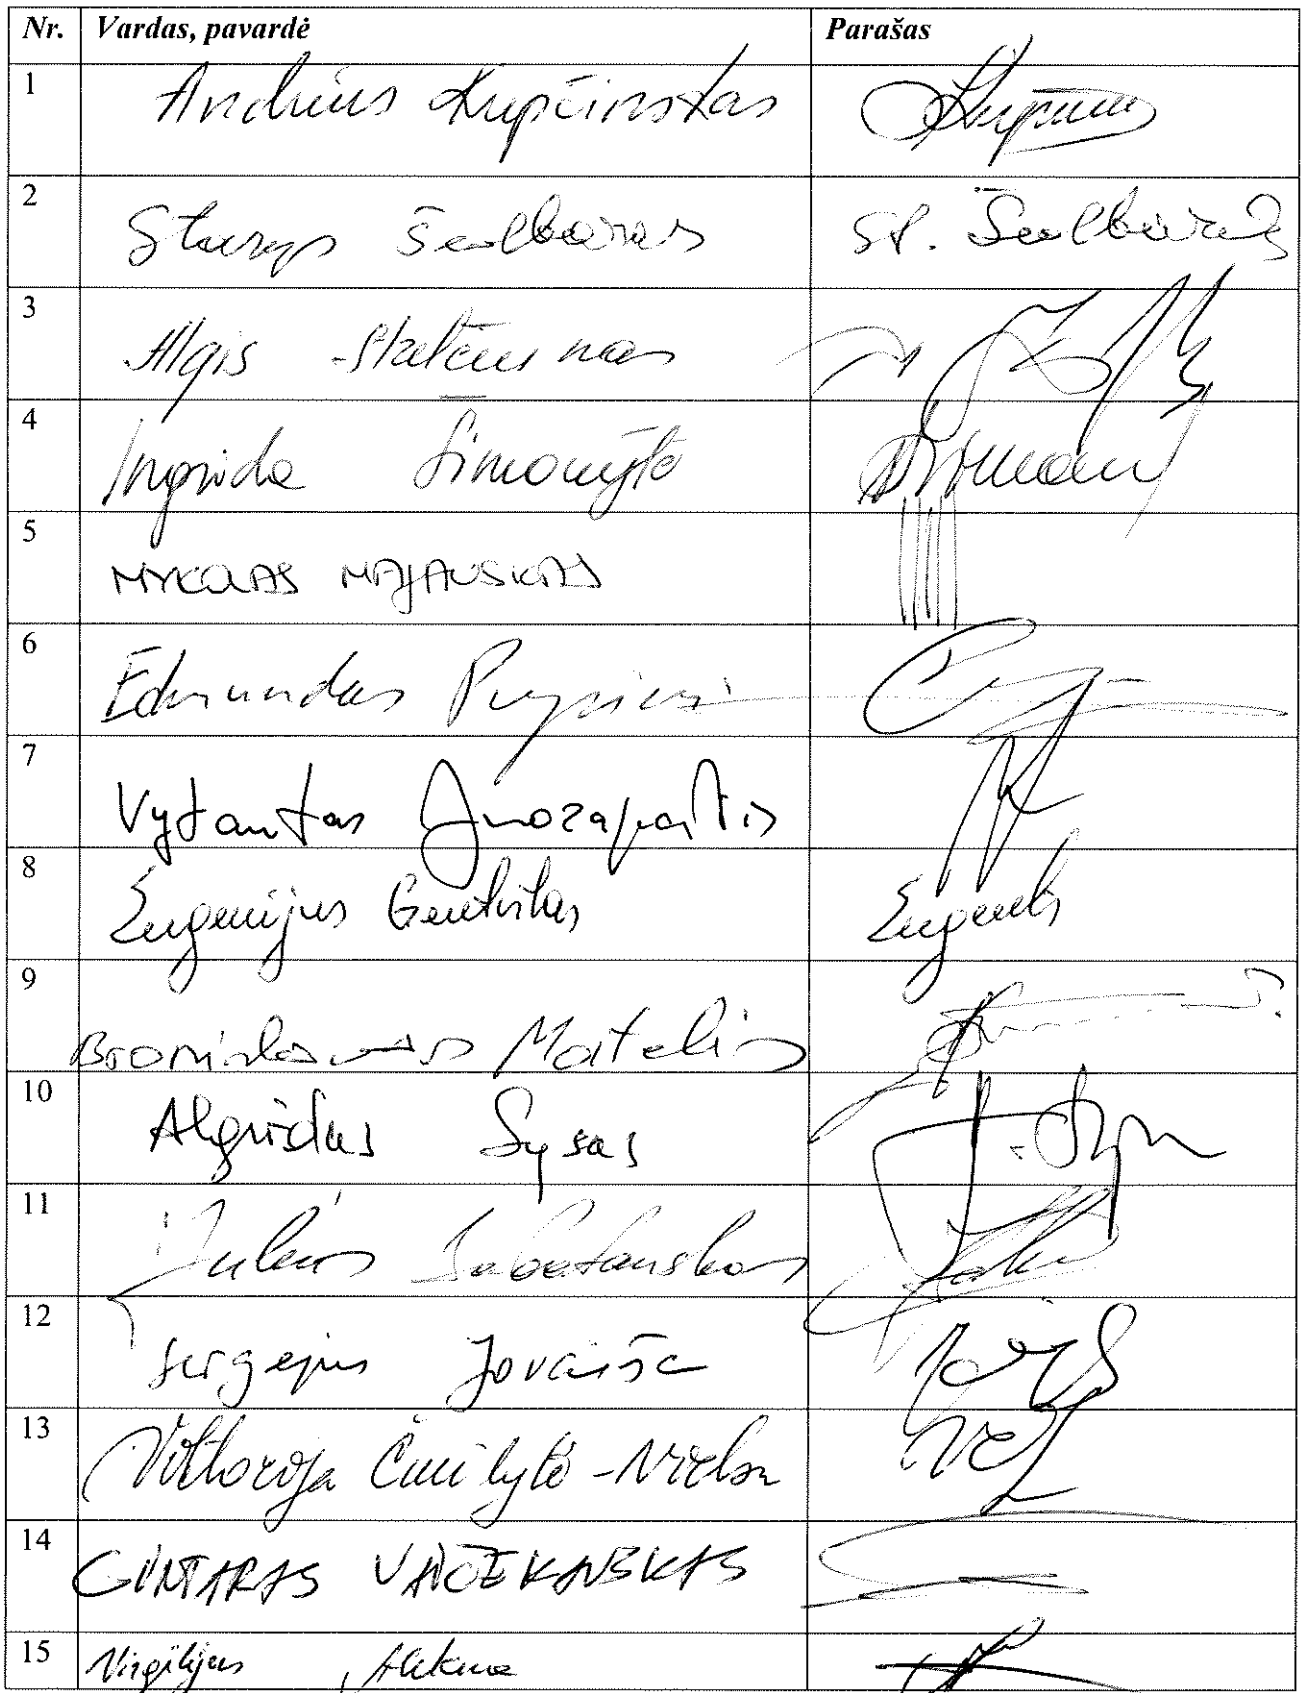 Nr. Vardas, pavardė Parašas
1 Andrius Kupčinskas
2 Stasys Šedbaras St. Šedbaras
3 Algis
4 Ingrida Šimonytė
5 MYKOLAS MAJAUSKAS
6 Edmundas Pupinis
7 Vytautas Juozapaitis
8 Eugenijus Gentvilas
9 Bronislovas Matelis
10 Algirdas Sysas
11 Julius Sabatauskas
12 Sergejus Jovaiša
13 Viktorija Čmilytė-Nielsen
14 GINTARAS VAIČEKAUSKAS
15 Virgilijus Alekna